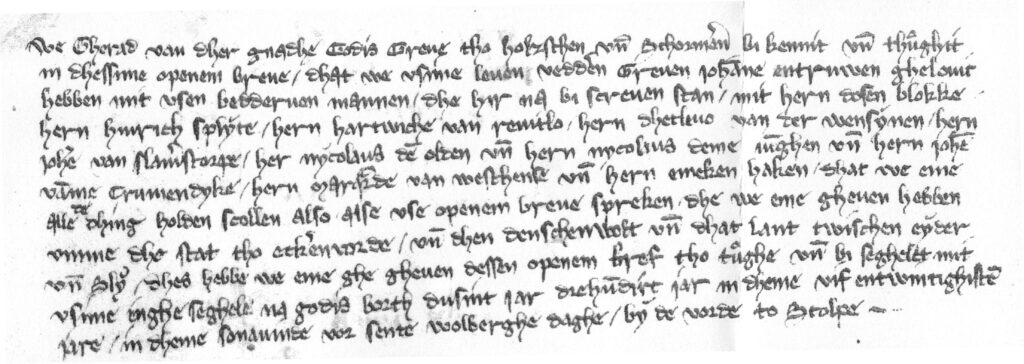 We Gherad van dher gnadhe Godis Greve tho holtzsten vn̄ Schormeren bi kennit vn̄ thughit
in dhessime openem breve / dhat we vsime leven vedderen Greven johāne entruwen ghelovit
hebben mit vsen bedderven mannen / dhe hir na bi screven stan / mit hern dosen blokke
hern hinrich splyte / hern hartwiche van reuitlo / hern dhetlevo van der wensynen / hern
joh̄e van slamstorpe / her nycolaus dē olden vn̄ hern nycolaus deme iūghen vn̄ hern joh̄e
vāme Crumendyke / hern Marq̄rde van weschense vn̄ hern emeken haken / dhat we eme
alle de dhing holden scollen also alse vse openem breve spreken / dhe we eme gheven hebben
vmme dhe stat tho eckerenvorde / vn̄ dhen denschenwolt vn̄ dhat lant twischen eyder
vn̄ Sly / dhes hebbe we eme ghe gheven dessen openem bref tho tughe vn̄ bi seghelet mit
vsime inghe seghele na godis borth dusint jar drehūdirt jar in dheme vif entwintighistē
jare / in dheme sonavinde vor sente wolberghe daghe / by de vorde to Stolpe